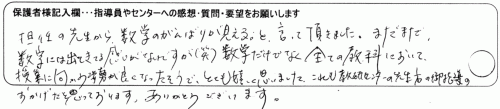 保護者様記入欄･･･指導員やセンターへの感想・質問・要望をお願いします
担任の先生から、数学のがんばりが見えると、言って頂きました。まだまだ、
数学には出てきてる感じがなんですが(笑)数学だけでなく全ての教科において、
授業に向かう姿勢が良くなったそうで、とても嬉しく思いました。これも教育センターの先生方の御指導の
おかげだと思っております。ありがとうございます。